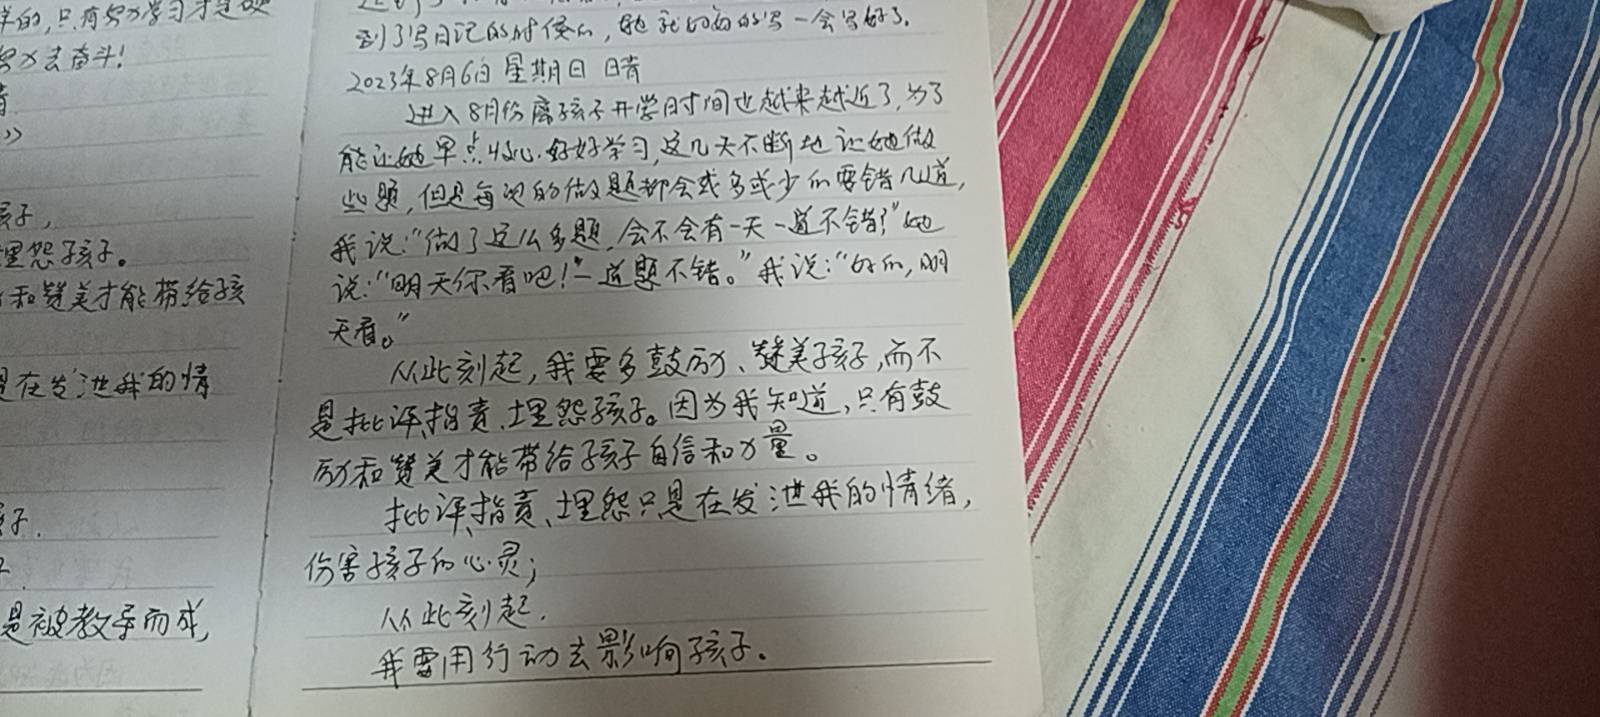 样的,只有努力学习才是硬
努力去奋斗!
孩子,
埋怨孩子。
和赞美才能带给孩
是在发泄我的情
子.
是被教导而成,
到了写日记的时候的,她就的的写一会写好了.
2023年8月6日 星期日 晴
进入8月份离孩子开学时间也越来越近了,为了
能让她早点收心.好好学习,这几天不断地让她做
些题,但是每次的做题都会或多或少的要错几道,
我说:“做了这么多题,会不会有一天一道不错?”她
说:“明天你看吧!一道题不错。”我说:“好的,明
天看。”
从此刻起,我要多鼓励、赞美孩子,而不
是批评、指责、埋怨孩子。因为我知道,只有鼓
励和赞美才能带给孩子自信和力量。
批评、指责、埋怨只是在发泄我的情绪,
伤害孩子的心灵;
从此刻起.
我要用行动去影响孩子.